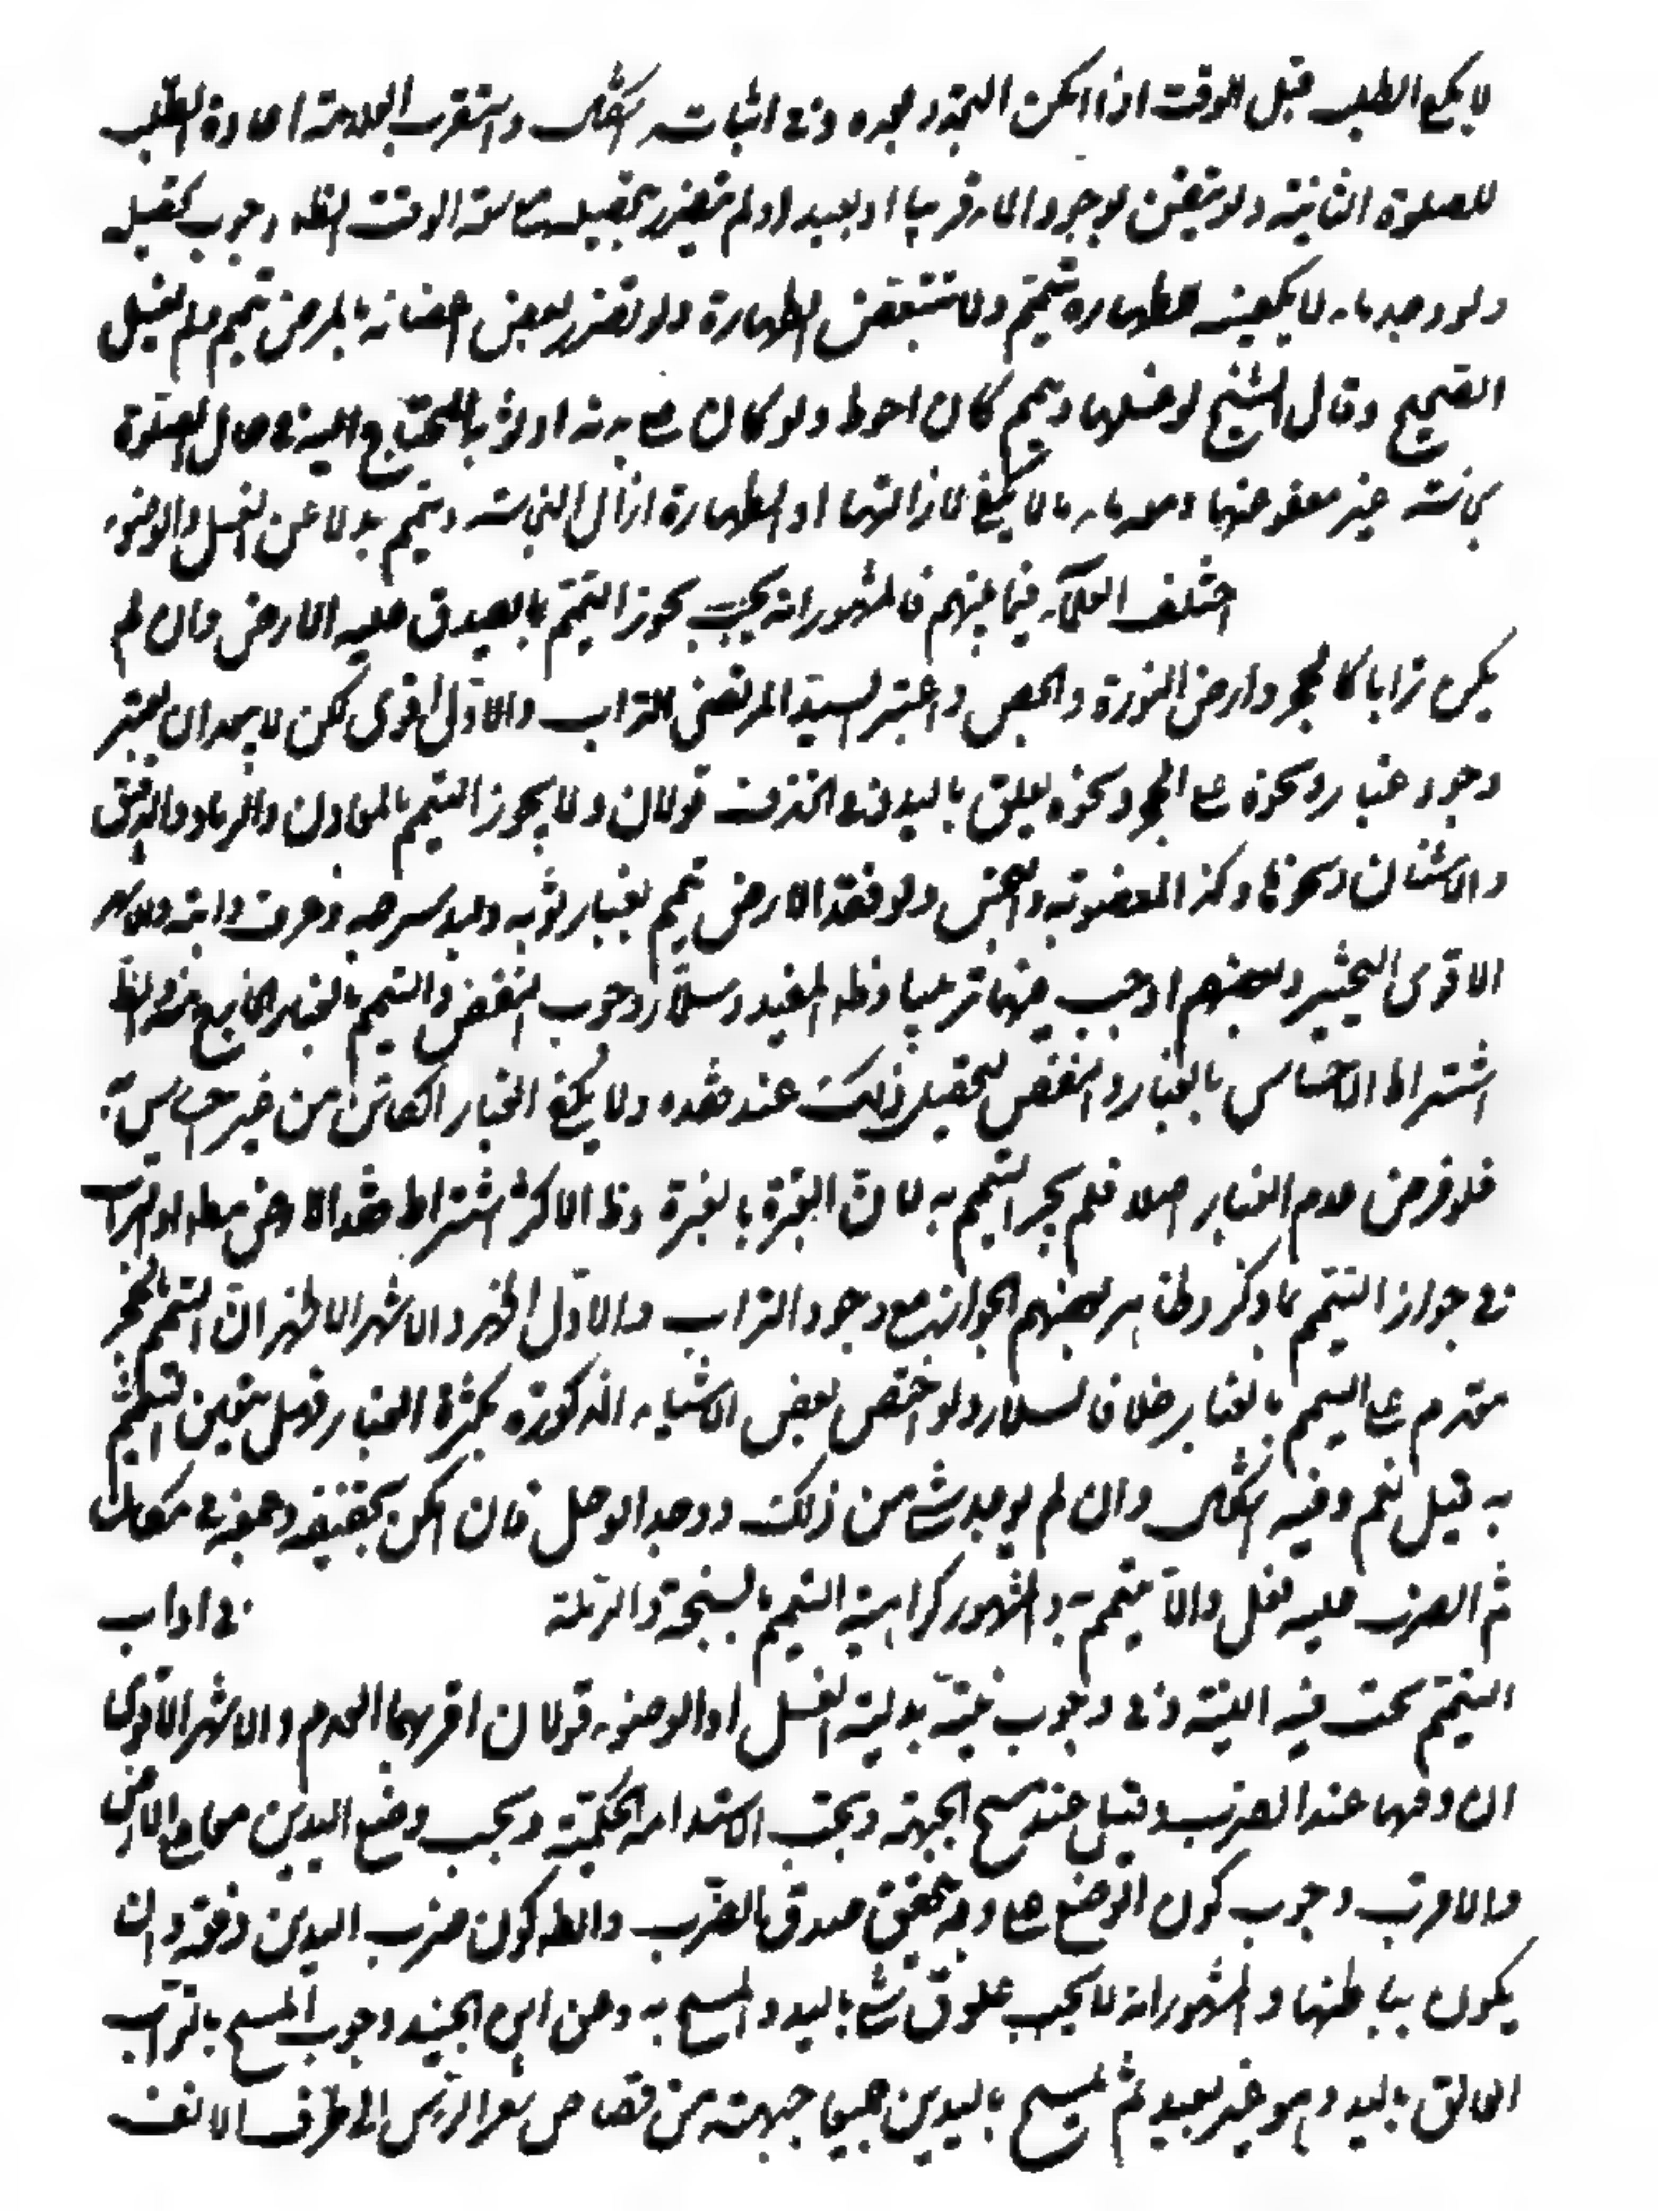 لا يكفي الطلب قبل الوقت اذا امكن التجدد بعده وفي اثباته اشكال واستقرب العلامة اعادة الطلب
للصلوة الثانية ولو تيقن بوجود الماء قريبا او بعيدا ولم يتضرر بتحصيله مع سعة الوقت الظ وجوب تحصيله
ولو وجد ماء لا يكفيه للطهارة تيمم ولا تتبعض الطهارة ولو تضرر بعض اعضائه بالمرض تيمم ولم يغسل
الصحيح وقال الشيخ لو غسلها وتيمم كان احوط ولو كان على بدنه او ثوبه المحتاج اليه في حال الصلوة
نجاسة غير معفو عنها ومعه ماء لا يكفي لازالتها او الطهارة ازال النجاسة وتيمم بدلا عن الغسل والوضوء
اختلف العلماء فيما بينهم فالمشهور انه يجوز التيمم بما يصدق عليه الارض وان لم
يكن ترابا كالحجر وارض النورة والجص واعتبر السيد المرتضى التراب والاول اقوى لكن لا يبعد ان يعتبر
وجود غبار ونحوه على الحجر ونحوه يعلق باليد وفي الخزف قولان ولا يجوز التيمم بالمعادن والرماد والدقيق
والاشنان ونحوها وكذا المغصوبة والنجس ولو فقد الارض تيمم بغبار ثوبه ولبد سرجه وعرف دابته والاشهر
الاقوى التخيير وبعضهم اوجب بينها ترتيبا وظ المفيد وسلار وجوب النفض والتيمم بالغبار الخارج منه والظ
اشتراط الاحساس بالغبار والنفض لتحصيل ذلك عند فقده ولا يكفي الغبار الكامن من غير احساس به
فلو فرض عدم الغبار اصلا فلم يجز التيمم به لان العبرة بالغبرة وظ الاكثر اشتراط فقد الارض مطلقا والتراب
في جواز التيمم بما ذكر وظاهر بعضهم الجواز مع وجود التراب والاول اظهر والاشهر الاظهر ان التيمم بالحجر
مقدم على التيمم بالغبار خلافا لسلار ولو اختص بعض الاشياء المذكورة بكثرة الغبار فهل يتعين التيمم
به قيل نعم وفيه اشكال وان لم يوجد شئ من ذلك ووجد الوحل فان امكن تجفيفه وجمعه في مكان
ثم الضرب عليه فعل والا تيمم به والمشهور كراهية التيمم بالسبخة والرملة في اداب
التيمم يجب فيه النية وفي وجوب نية بدلية الغسل او الوضوء قولان اقربهما العدم والاشهر الاقوى
ان وقتها عند الضرب وقيل عند مسح الجبهة ويجب الاستدامة الحكمية ويجب وضع اليدين معا على الارض
والاقرب وجوب كون الوضع على وجه يتحقق صدق الضرب والظ كون ضرب اليدين دفعة وان
يكون بباطنها والمشهور انه لا يجب علوق شئ باليد والمسح به وعن ابن الجنيد وجوب المسح بالتراب
العالق باليد وهو غير بعيد ثم يمسح باليدين جميعا جبهته من قصاص شعر الرأس الى طرف الانف